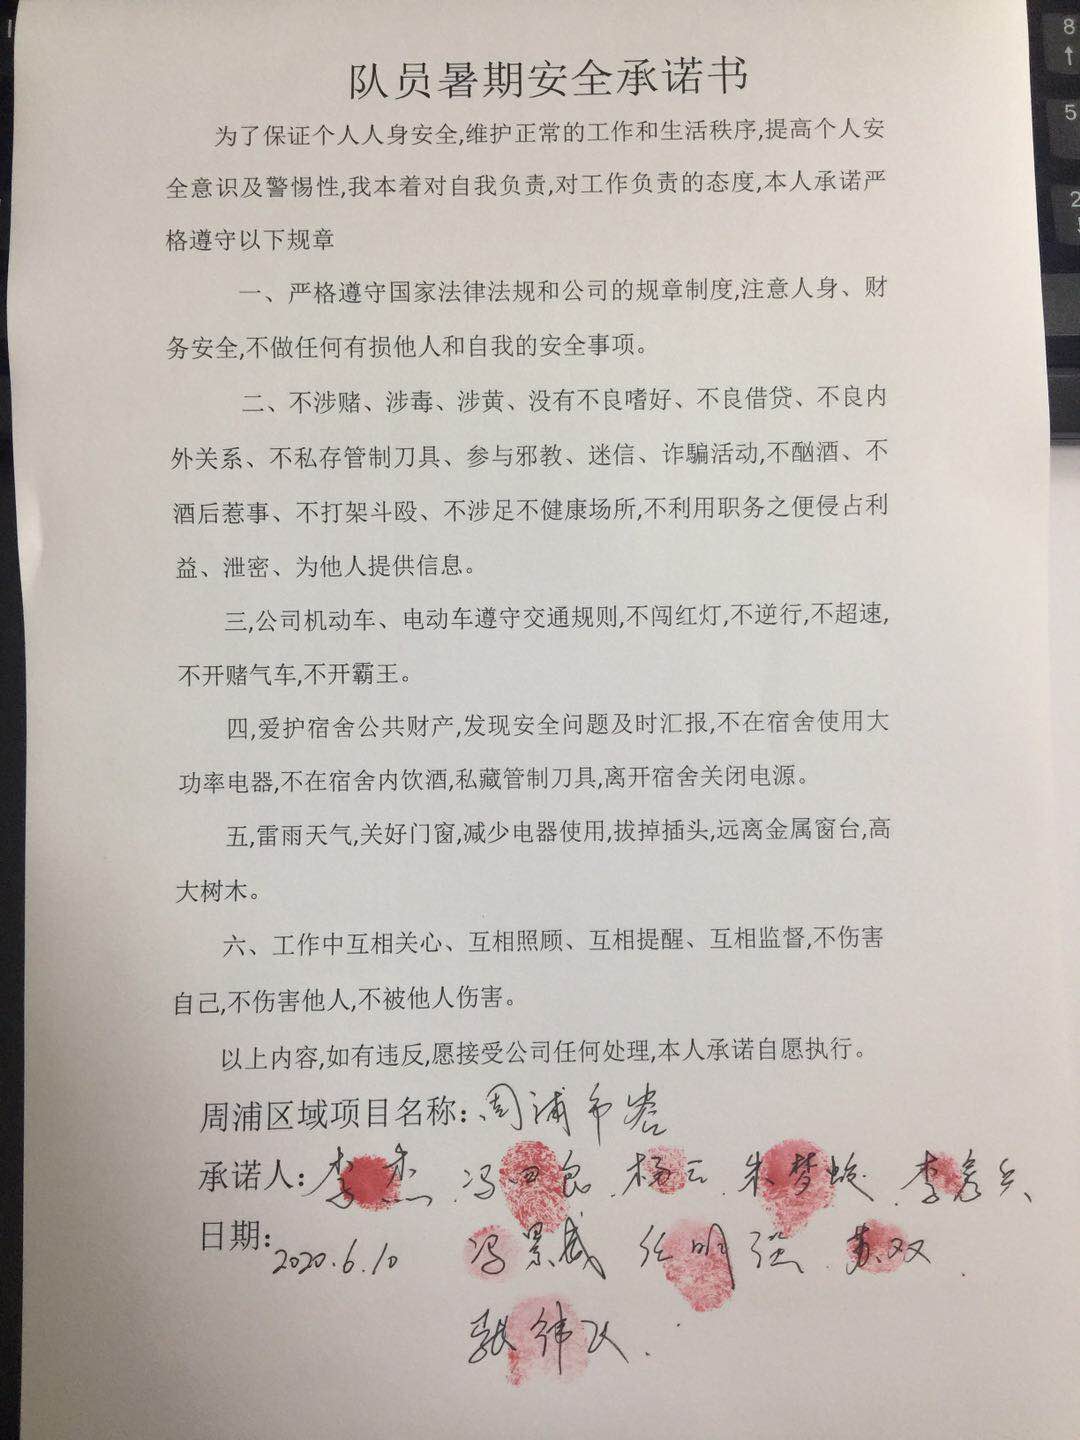 队员暑期安全承诺书
为了保证个人人身安全,维护正常的工作和生活秩序,提高个人安
全意识及警惕性,我本着对自我负责,对工作负责的态度,本人承诺严
格遵守以下规章
一、严格遵守国家法律法规和公司的规章制度,注意人身、财
务安全,不做任何有损他人和自我的安全事项。
二、不涉赌、涉毒、涉黄、没有不良嗜好、不良借贷、不良内
外关系、不私存管制刀具、参与邪教、迷信、诈騙活动,不酗酒、不
酒后惹事、不打架斗殴、不涉足不健康场所,不利用职务之便侵占利
益、泄密、为他人提供信息。
三,公司机动车、电动车遵守交通规则,不闯红灯,不逆行,不超速,
不开赌气车,不开霸王。
四,爱护宿舍公共财产,发现安全问题及时汇报,不在宿舍使用大
功率电器,不在宿舍内饮酒,私藏管制刀具,离开宿舍关闭电源。
五,雷雨天气,关好门窗,减少电器使用,拔掉插头,远离金属窗台,高
大树木。
六、工作中互相关心、互相照顾、互相提醒、互相监督,不伤害
自己,不伤害他人,不被他人伤害。
以上内容,如有违反,愿接受公司任何处理,本人承诺自愿执行。
周浦区域项目名称:周浦印
承诺人:李杰 冯 良 杨云 朱梦 李彦兵
日期:2020.6.10 冯景成 任明强 苏双
伟